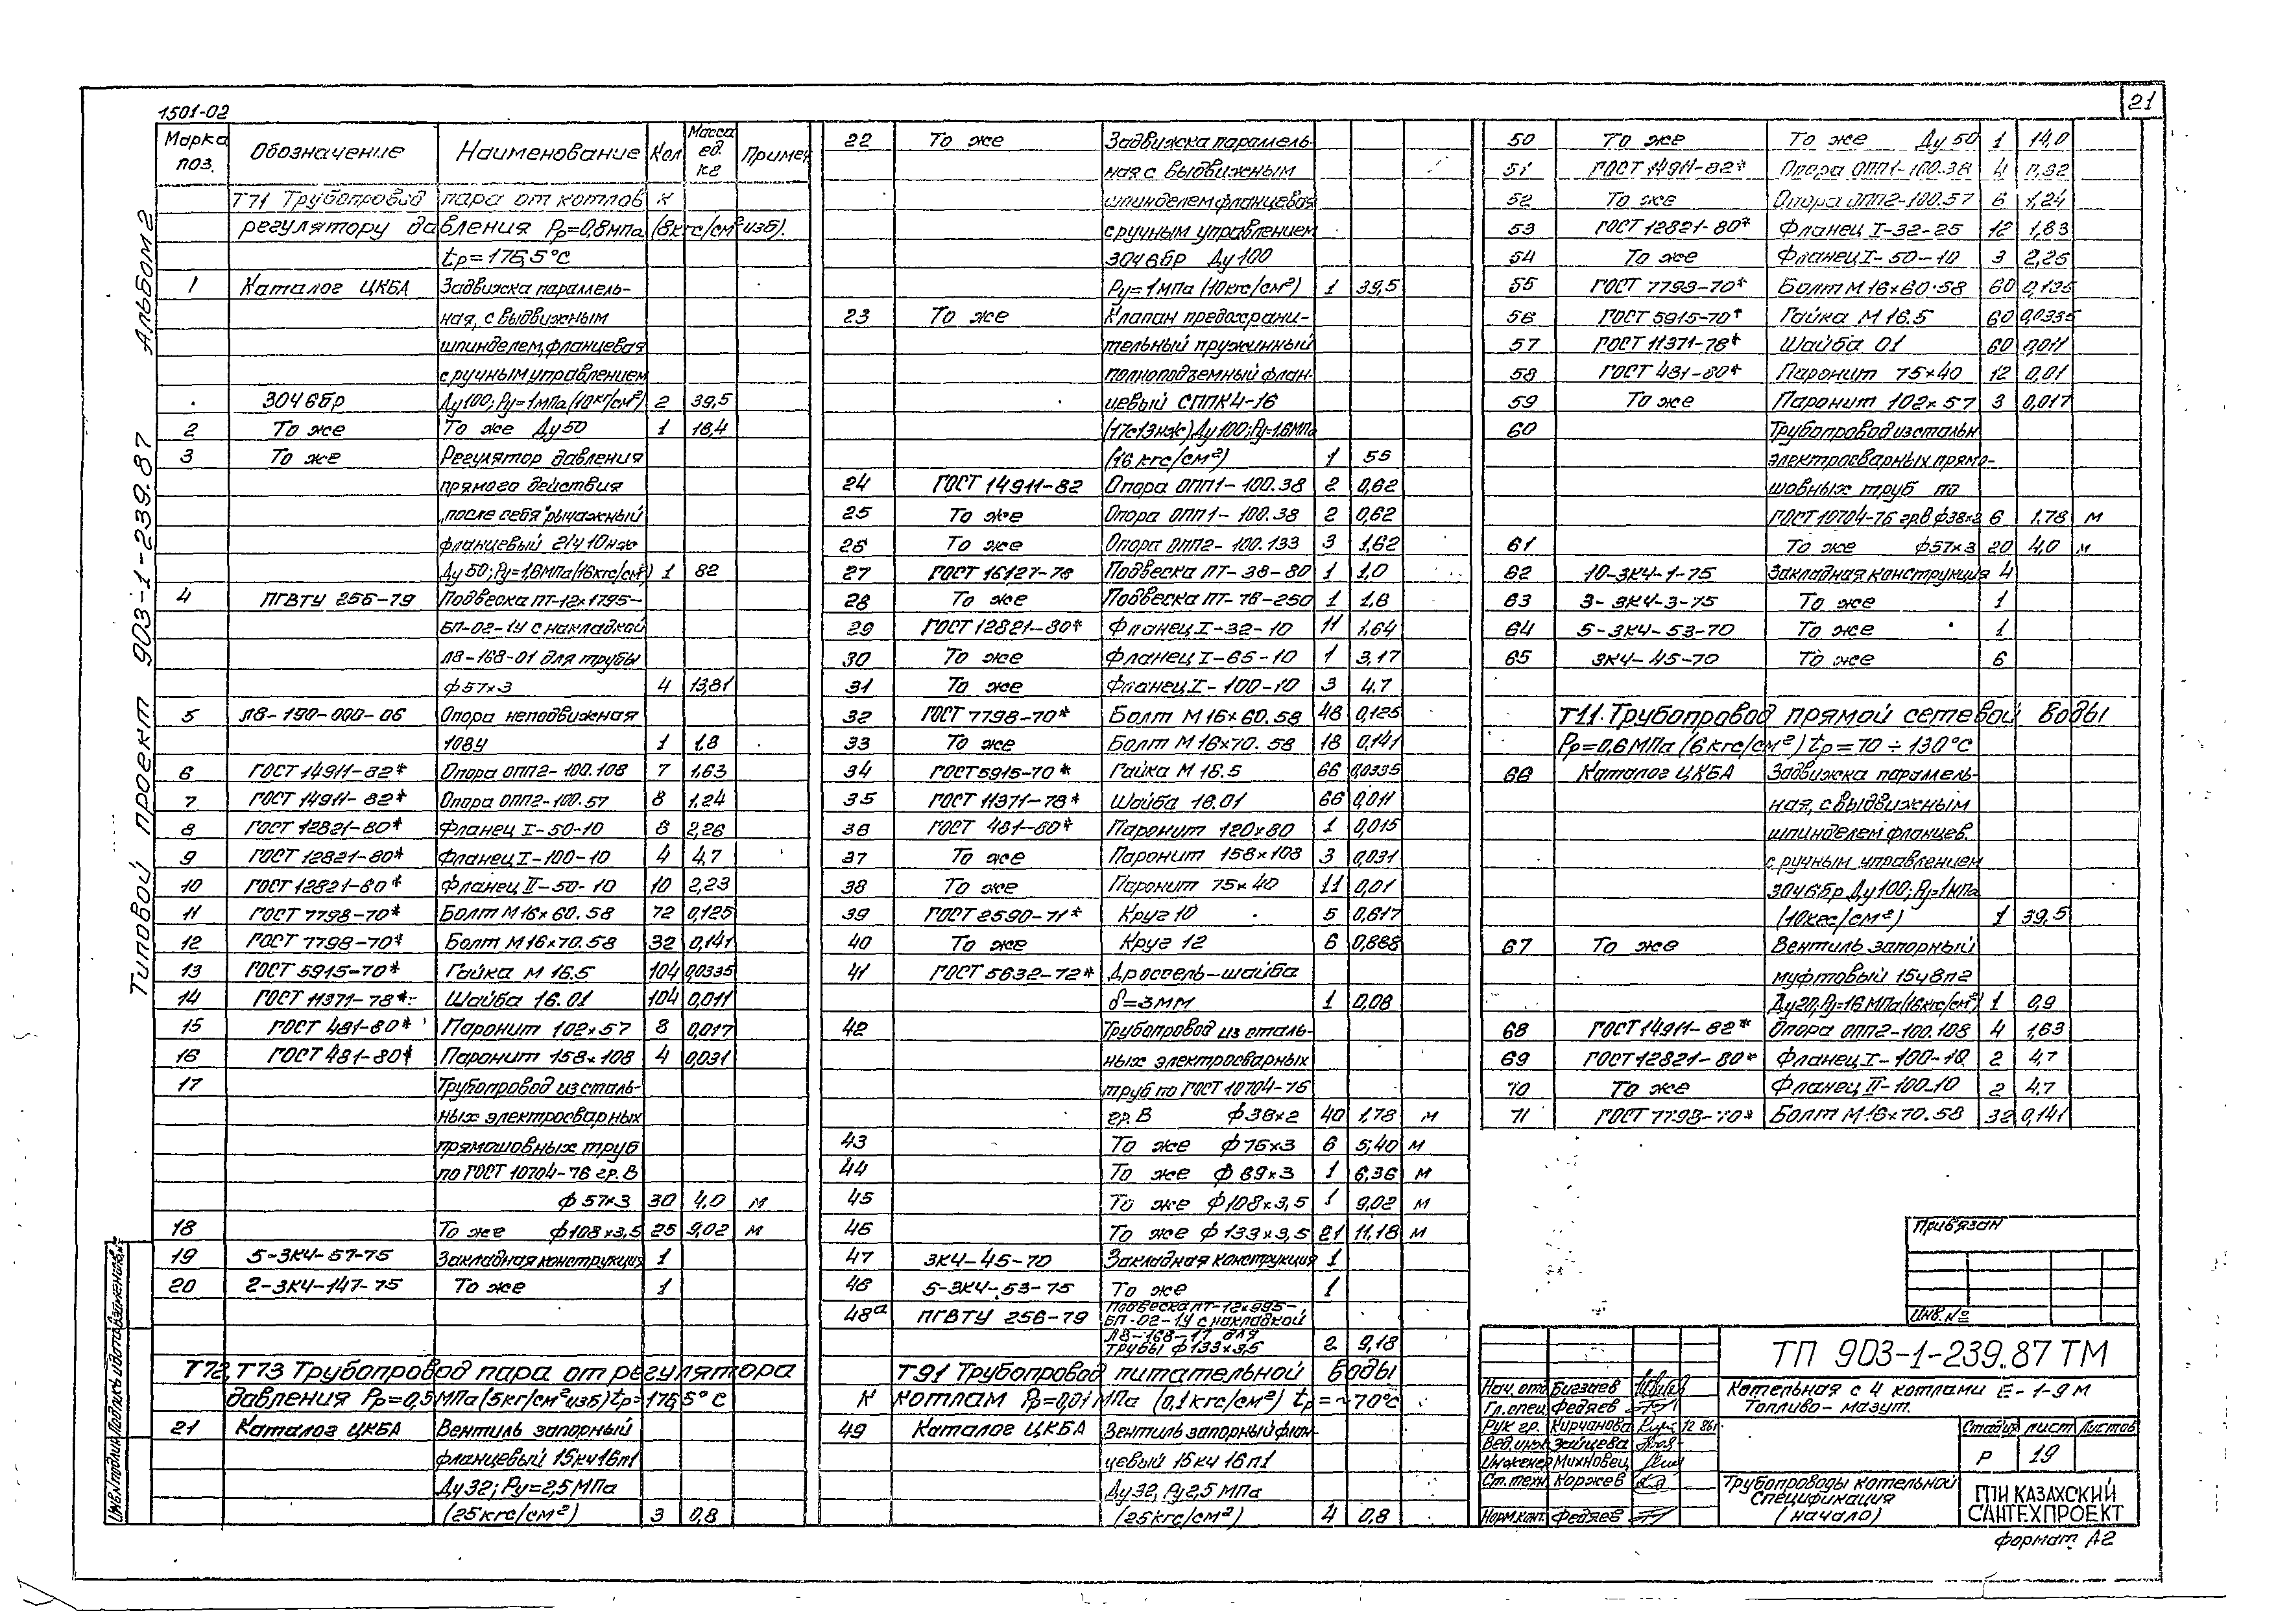 21
1501-02
Альбом 2
Типовой проект 903-1-239.87
Марка поз. Обозначение Наименование Кол Масса ед. кг Примеч
Т71 Трубопровод пара от котлов к
регулятору давления Рр=0,8мпа (8кгс/см² изб).
tр=175,5°С
1 Каталог ЦКБА Задвижка параллель-
ная, с выдвижным
шпинделем, фланцевая
с ручным управлением
30ч6бр Ду100; Ру=1мпа (10кг/см²) 2 39,5
2 То же То же Ду50 1 18,4
3 То же Регулятор давления
прямого действия
„после себя" рычажный
фланцевый 21ч10нж
Ду50; Ру=1,6мпа (16кгс/см²) 1 82
4 ПГВТУ 256-79 Подвеска ПТ-12х1795-
БП-02-1У с накладкой
Л8-168-01 для трубы
ф57х3 4 13,81
5 Л8-190-000-06 Опора неподвижная
108У 1 1,8
6 ГОСТ 14911-82* Опора ОПП2-100.108 7 1,63
7 ГОСТ 14911-82* Опора ОПП2-100.57 8 1,24
8 ГОСТ 12821-80* Фланец I-50-10 6 2,26
9 ГОСТ 12821-80* Фланец I-100-10 4 4,7
10 ГОСТ 12821-80* Фланец II-50-10 10 2,23
11 ГОСТ 7798-70* Болт М16х60.58 72 0,125
12 ГОСТ 7798-70* Болт М16х70.58 32 0,141
13 ГОСТ 5915-70* Гайка М 16.5 104 0,0335
14 ГОСТ 11371-78* Шайба 16.01 104 0,011
15 ГОСТ 481-80* Паронит 102х57 8 0,017
16 ГОСТ 481-80* Паронит 158х108 4 0,031
17 Трубопровод из сталь-
ных электросварных
прямошовных труб
по ГОСТ 10704-76 гр.В
ф 57х3 30 4,0 м
18 То же ф108х3,5 25 9,02 м
19 5-ЗК4-57-75 Закладная конструкция 1
20 2-ЗК4-147-75 То же 1
Т72, Т73 Трубопровод пара от регулятора
давления Рр=0,5МПа (5кг/см² изб) tр=175,5°С
21 Каталог ЦКБА Вентиль запорный
фланцевый 15кч16п1
Ду32; Ру=2,5 МПа
(25кгс/см²) 3 0,8
22 То же Задвижка параллель-
ная с выдвижным
шпинделем фланцевая
с ручным управлением
30ч6бр Ду100
Ру=1мпа (10кгс/см²) 1 39,5
23 То же Клапан предохрани-
тельный пружинный
полноподъемный флан-
цевый СППК4-16
(17с13нж) Ду100; Ру=1.6МПа
(16кгс/см²) 1 55
24 ГОСТ 14911-82 Опора ОПП1-100.38 2 0,62
25 То же Опора ОПП1-100.38 2 0,62
26 То же Опора ОПП2-100.133 3 1,62
27 ГОСТ 16127-78 Подвеска ПТ-38-80 1 1,0
28 То же Подвеска ПТ-76-250 1 1,6
29 ГОСТ 12821-80* Фланец I-32-10 11 1,64
30 То же Фланец I-65-10 1 3,17
31 То же Фланец I-100-10 3 4,7
32 ГОСТ 7798-70* Болт М16х60.58 48 0,125
33 То же Болт М16х70.58 18 0,141
34 ГОСТ 5915-70* Гайка М 16.5 66 0,0335
35 ГОСТ 11371-78* Шайба 16.01 66 0,011
36 ГОСТ 481-80* Паронит 120х80 1 0,015
37 То же Паронит 158х108 3 0,031
38 То же Паронит 75х40 11 0,01
39 ГОСТ 2590-71* Круг 10 5 0,617
40 То же Круг 12 6 0,888
41 ГОСТ 5632-72* Дроссель-шайба
δ=3мм 1 0,08
42 Трубопровод из сталь-
ных электросварных
труб по ГОСТ 10704-76
гр.В ф38х2 40 1,78 м
43 То же ф76х3 6 5,40 м
44 То же ф89х3 1 6,36 м
45 То же ф108х3,5 1 9,02 м
46 То же ф133х3,5 21 11,18 м
47 ЗК4-45-70 Закладная конструкция 1
48 5-ЗК4-53-75 То же 1
48а ПГВТУ 256-79 Подвеска ПТ-12х995-
БП-02-1У с накладкой
Л8-168-11 для
трубы ф133х3,5 2 9,18
Т91 Трубопровод питательной воды
к котлам Рр=0,01МПа (0,1кгс/см²) tр=~70°С
49 Каталог ЦКБА Вентиль запорный флан-
цевый 15кч16п1
Ду32, Ру2,5 МПа
(25кгс/см²) 4 0,8
50 То же То же Ду50 1 14,0
51 ГОСТ 14911-82* Опора ОПП1-100.38 4 0,62
52 То же Опора ОПП2-100.57 6 1,24
53 ГОСТ 12821-80* Фланец I-32-25 12 1,83
54 То же Фланец I-50-10 3 2,26
55 ГОСТ 7798-70* Болт М16х60.58 60 0,125
56 ГОСТ 5915-70* Гайка М 16.5 60 0,0335
57 ГОСТ 11371-78* Шайба 01 60 0,011
58 ГОСТ 481-80* Паронит 75х40 12 0,01
59 То же Паронит 102х57 3 0,017
60 Трубопровод из стальн
электросварных прямо-
шовных труб по
ГОСТ 10704-76 гр.В ф38х2 6 1,78 м
61 То же ф57х3 20 4,0 м
62 10-ЗК4-1-75 Закладная конструкция 4
63 3-ЗК4-3-75 То же 1
64 5-ЗК4-53-70 То же 1
65 ЗК4-45-70 То же 6
Т11. Трубопровод прямой сетевой воды
Рр=0,6МПа (6кгс/см²) tр=70÷130°С
66 Каталог ЦКБА Задвижка параллель-
ная, с выдвижным
шпинделем фланцев.
с ручным управлением
30ч6бр Ду100; Ру=1мпа
(10кгс/см²) 1 39,5
67 То же Вентиль запорный
муфтовый 15ч8п2
Ду20, Ру=16 МПа (16кгс/см²) 1 0,9
68 ГОСТ 14911-82* Опора ОПП2-100.108 4 1,63
69 ГОСТ 12821-80* Фланец I-100-10 2 4,7
70 То же Фланец II-100-10 2 4,7
71 ГОСТ 7798-70* Болт М16х70.58 32 0,141
Привязан
Инв.№
ТП 903-1-239.87 ТМ
Котельная с 4 котлами Е-1-9М
Топливо-мазут.
Нач.отд
Гл.спец. Федяев
Рук гр. Кирчанова 12 86г
Вед.инж. Зайцева
Инженер Михновец
Ст.техн. Коржев
Норм.конт. Федяев
Стадия Лист Листов
Р 19
Трубопроводы котельной
Спецификация
(начало)
ГПИ КАЗАХСКИЙ
САНТЕХПРОЕКТ
Формат А2